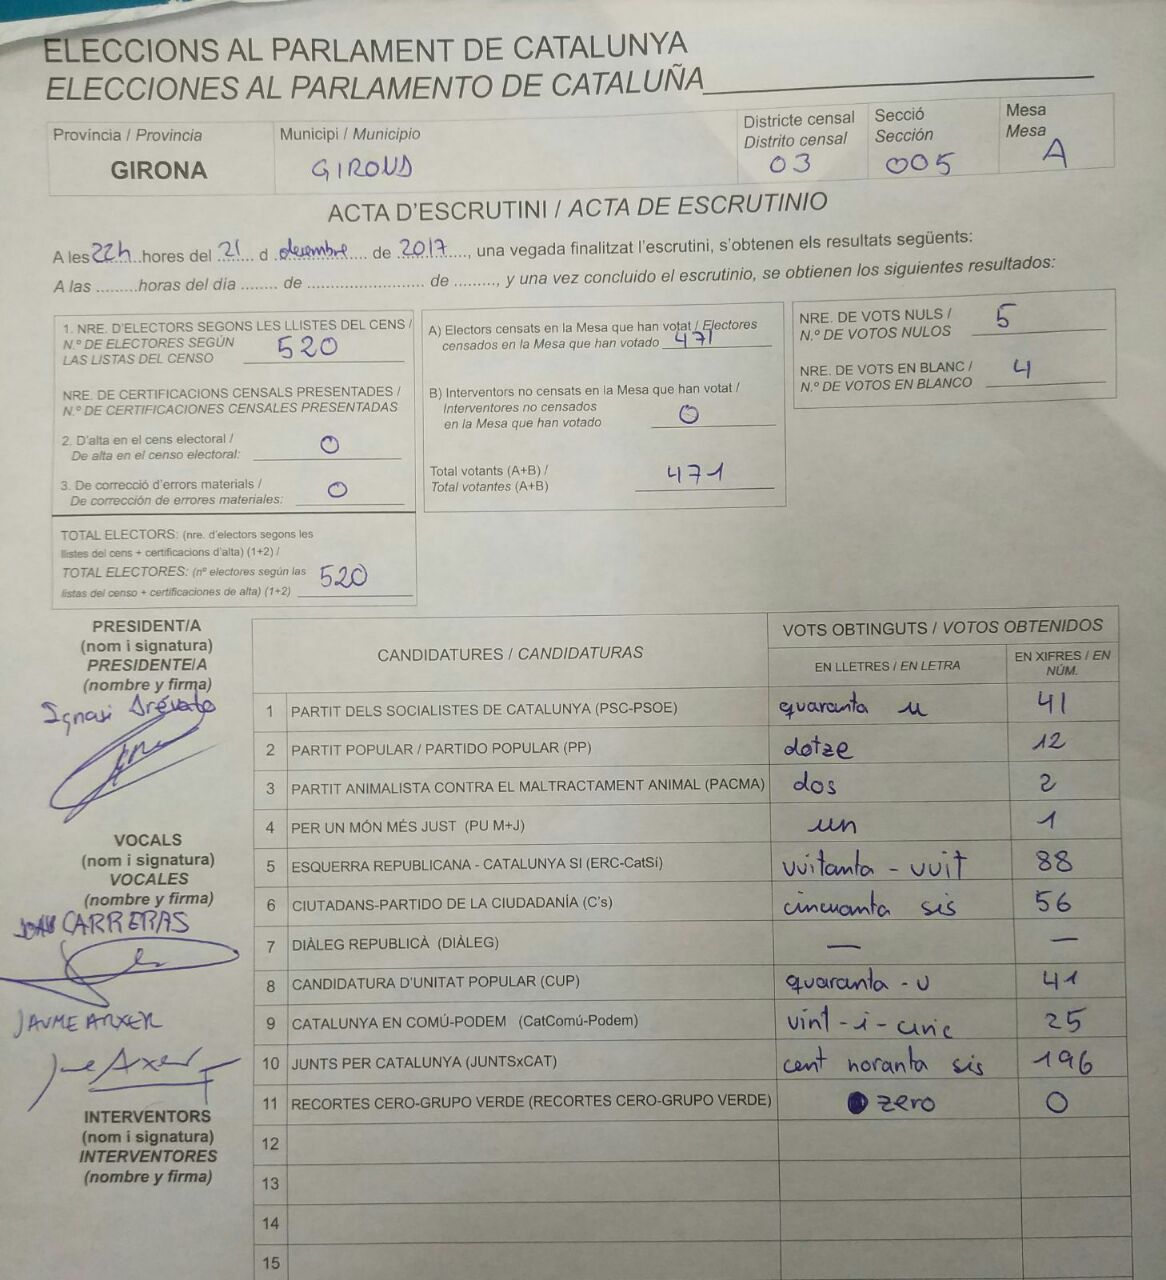 ELECCIONS AL PARLAMENT DE CATALUNYA
ELECCIONES AL PARLAMENTO DE CATALUÑA
Provincia / Provincia
GIRONA
Municipi / Municipio
GIRONA
Districte censal
Distrito censal
03
Secció
Sección
005
Mesa
Mesa
A
ACTA D'ESCRUTINI / ACTA DE ESCRUTINIO
A les 22h hores del 21 d desembre de 2017, una vegada finalitzat l'escrutini, s'obtenen els resultats següents:
A las .........horas del día ........ de ........................ de ........., y una vez concluido el escrutinio, se obtienen los siguientes resultados:
1. NRE. D'ELECTORS SEGONS LES LLISTES DEL CENS /
N.º DE ELECTORES SEGÚN
LAS LISTAS DEL CENSO 520
NRE. DE CERTIFICACIONS CENSALS PRESENTADES /
N.º DE CERTIFICACIONES CENSALES PRESENTADAS
2. D'alta en el cens electoral /
De alta en el censo electoral: 0
3. De correcció d'errors materials /
De corrección de errores materiales: 0
TOTAL ELECTORS: (nre. d'electors segons les
llistes del cens + certificacions d'alta) (1+2) /
TOTAL ELECTORES: (nº electores según las
listas del censo + certificaciones de alta) (1+2) 520
A) Electors censats en la Mesa que han votat / Electores
censados en la Mesa que han votado 471
B) Interventors no censats en la Mesa que han votat /
Interventores no censados
en la Mesa que han votado 0
Total votants (A+B) /
Total votantes (A+B) 471
NRE. DE VOTS NULS /
N.º DE VOTOS NULOS 5
NRE. DE VOTS EN BLANC /
N.º DE VOTOS EN BLANCO 4
PRESIDENT/A
(nom i signatura)
PRESIDENTE/A
(nombre y firma)
Ignasi Arévalo
VOCALS
(nom i signatura)
VOCALES
(nombre y firma)
JOAN CARRERAS
JAUME ARXER
INTERVENTORS
(nom i signatura)
INTERVENTORES
(nombre y firma)
CANDIDATURES / CANDIDATURAS
VOTS OBTINGUTS / VOTOS OBTENIDOS
EN LLETRES / EN LETRA
EN XIFRES / EN NÚM.
1 PARTIT DELS SOCIALISTES DE CATALUNYA (PSC-PSOE) quaranta u 41
2 PARTIT POPULAR / PARTIDO POPULAR (PP) dotze 12
3 PARTIT ANIMALISTA CONTRA EL MALTRACTAMENT ANIMAL (PACMA) dos 2
4 PER UN MÓN MÉS JUST (PU M+J) un 1
5 ESQUERRA REPUBLICANA - CATALUNYA SI (ERC-CatSí) vuitanta - vuit 88
6 CIUTADANS-PARTIDO DE LA CIUDADANÍA (C's) cincuanta sis 56
7 DIÀLEG REPUBLICÀ (DIÀLEG) — —
8 CANDIDATURA D'UNITAT POPULAR (CUP) quaranta - u 41
9 CATALUNYA EN COMÚ-PODEM (CatComú-Podem) vint-i-cinc 25
10 JUNTS PER CATALUNYA (JUNTSxCAT) cent noranta sis 196
11 RECORTES CERO-GRUPO VERDE (RECORTES CERO-GRUPO VERDE) zero 0
12
13
14
15